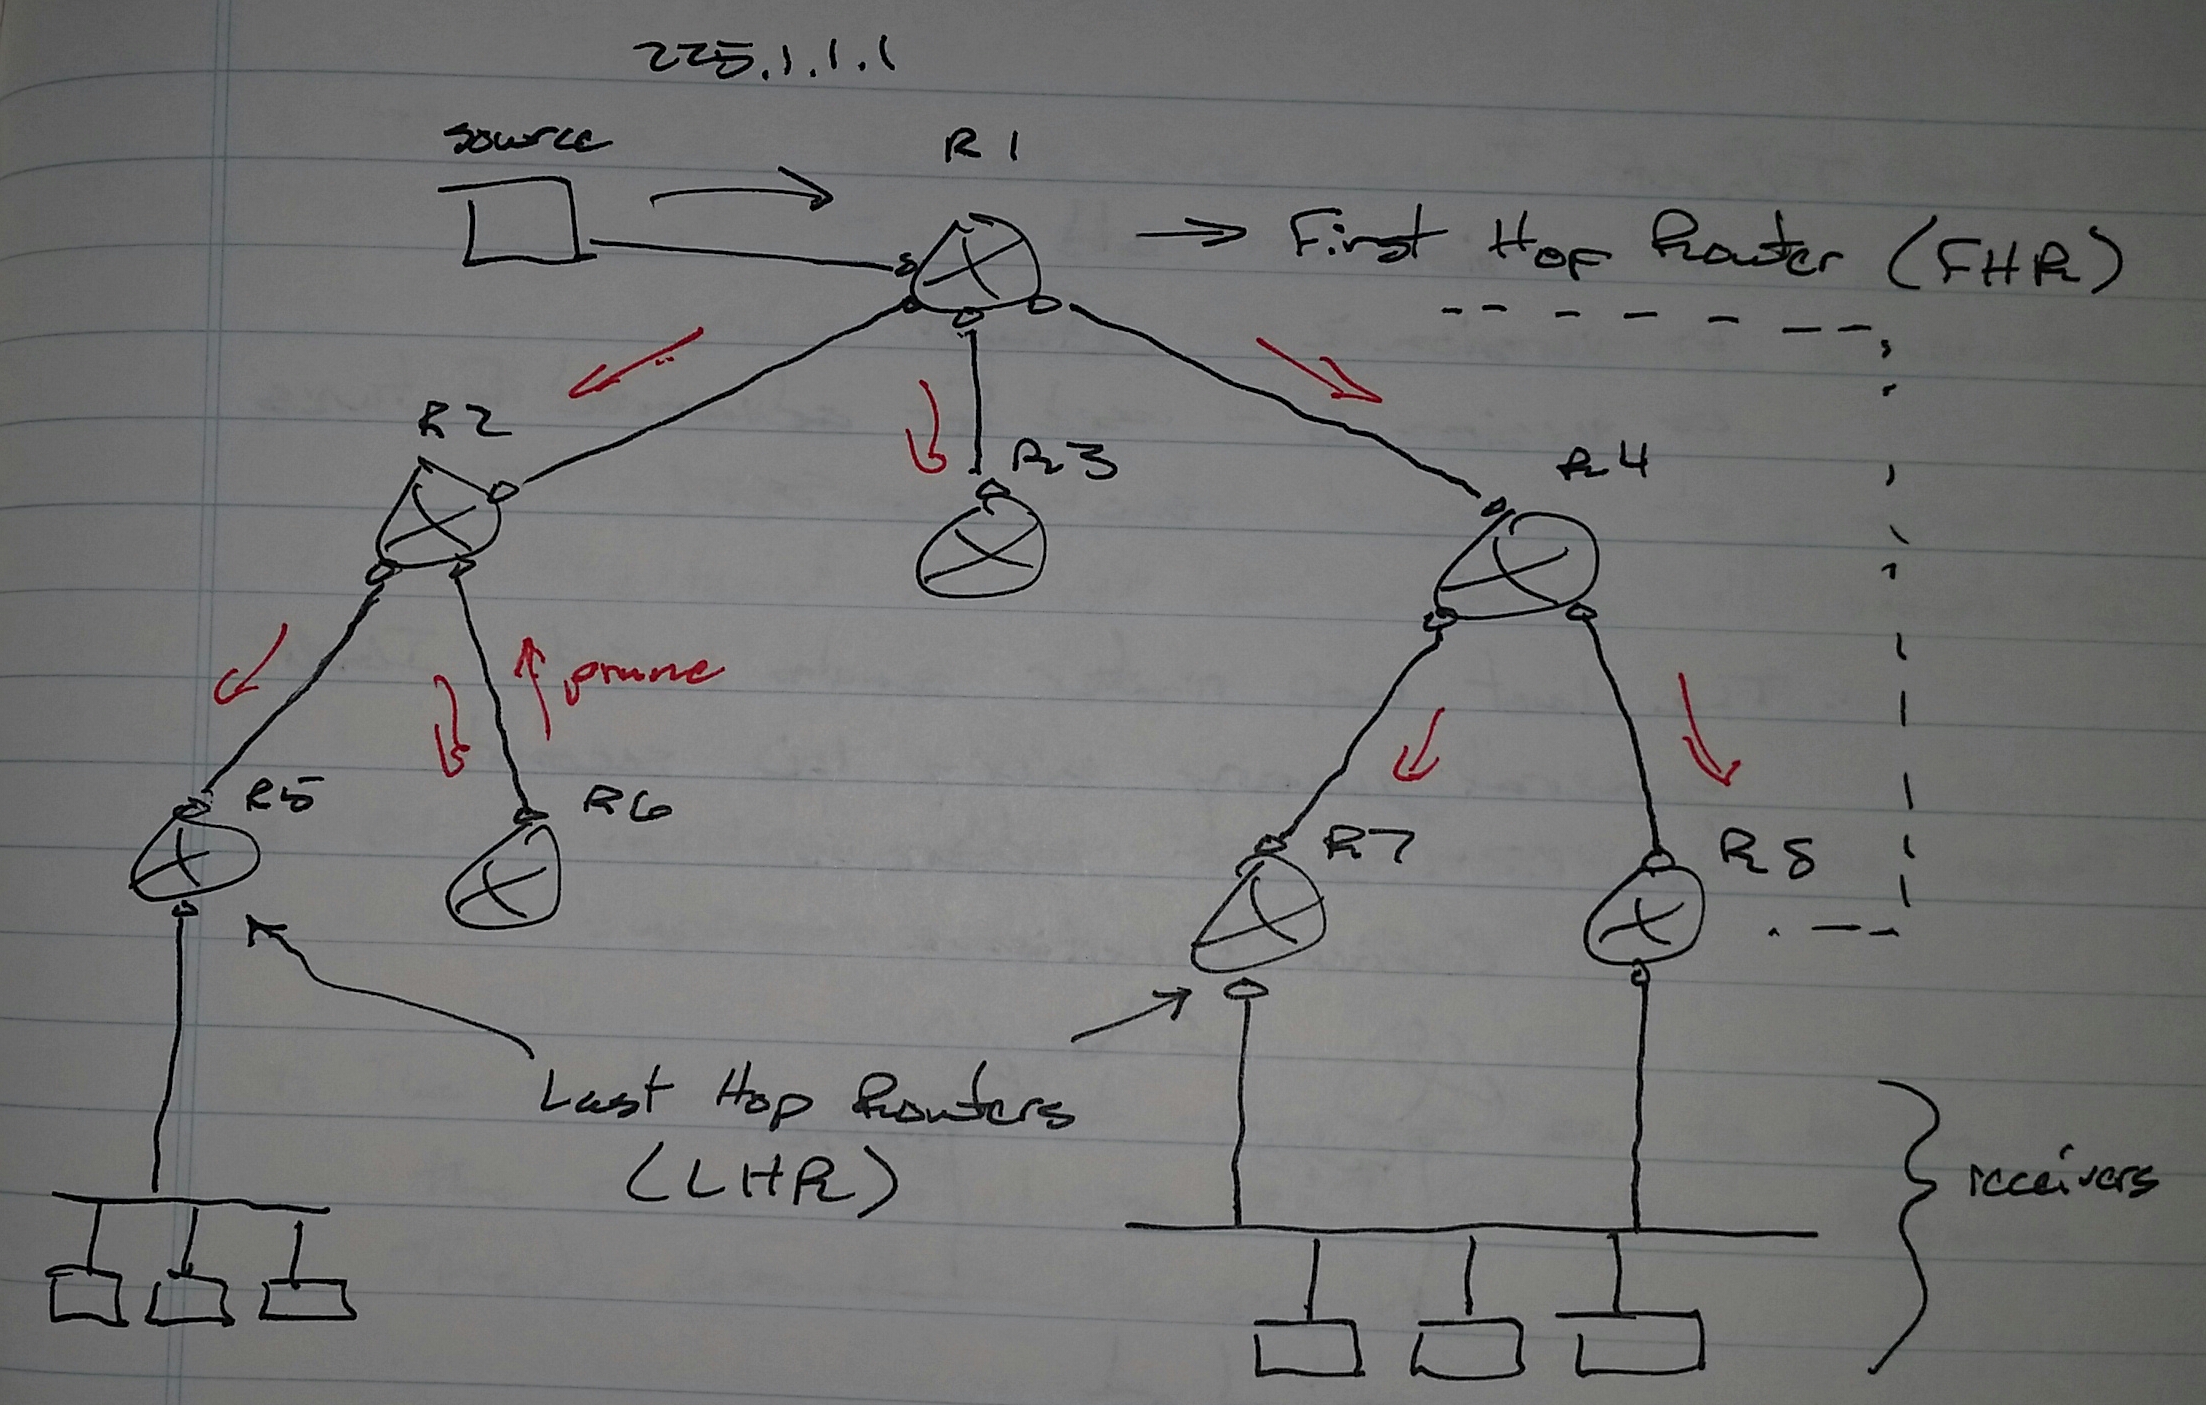 225.1.1.1
source
R1
First Hop Router (FHR)
R2
R3
R4
prune
R5
R6
R7
R8
Last Hop Routers
(LHR)
receivers